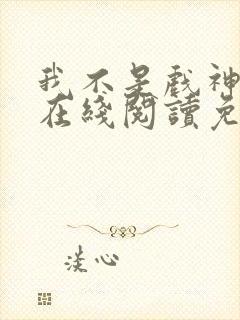 我不是戲神
在綫閱讀免
淡心